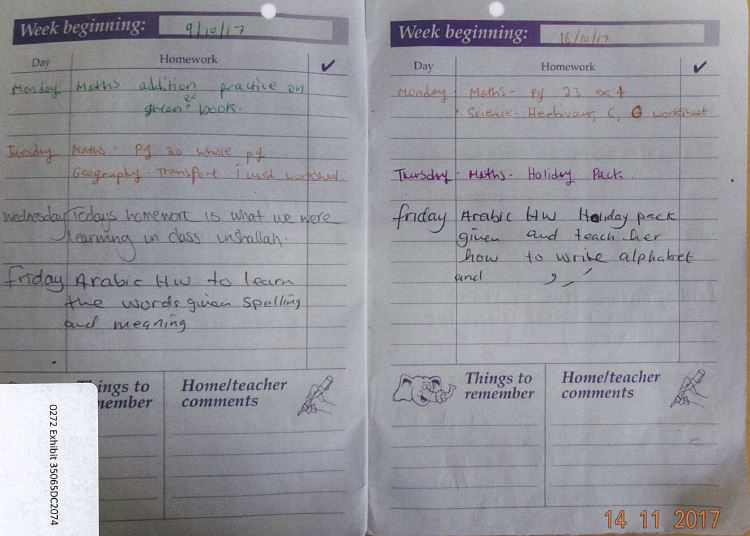 Week beginning: 9/10/17
Day Homework ✓
Monday Maths addition practice on
green book.
Tuesday Maths - Pg 20 whole pg
Geography - Transport i used worksheet
Wednesday Todays homework is what we were
learning in class inshallah.
friday Arabic HW. to learn
the words given spelling
and meaning
Things to
remember
Home/teacher
comments
0272 Exhibit 35065DC2074
Week beginning: 16/10/17
Day Homework ✓
Monday Maths - pg 23 ex 4
Science - Herbivour, C, O worksheet
Thursday - Maths - Holiday Pack.
friday Arabic HW Holiday pack
given and teach her
how to write alphabet
and
Things to
remember
Home/teacher
comments
14 11 2017